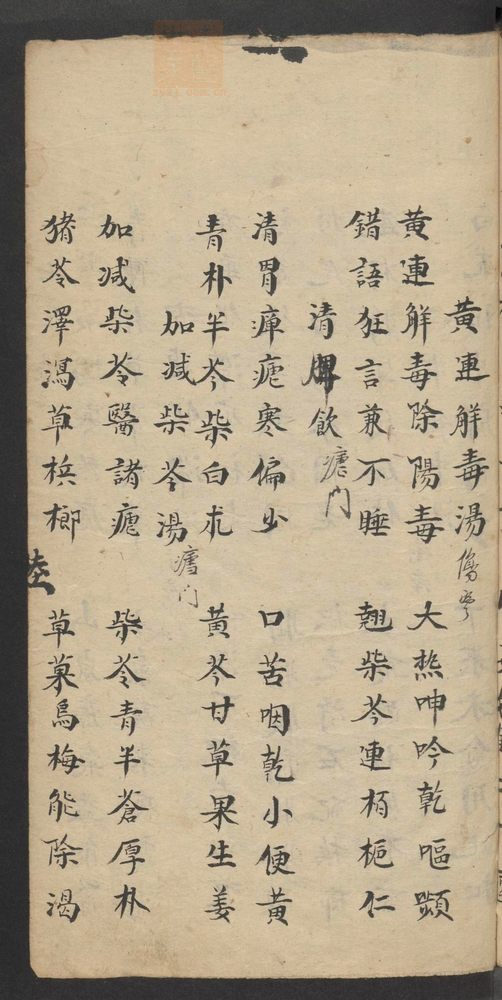 黄連解毒湯 傷寒
黄連解毒除陽毒 大热呻吟乾嘔顕
錯語狂言兼不睡 翘柴芩連栢梔仁
清脾飲 瘧门
清胃瘅瘧寒偏少 口苦咽乾小便黄
青朴半芩柴白朮 黄芩甘草果生姜
加减柴苓湯 瘧门
加减柴苓醫諸瘧 柴苓青半蒼厚朴
猪苓澤瀉草梹榔 草菓烏梅能除渴